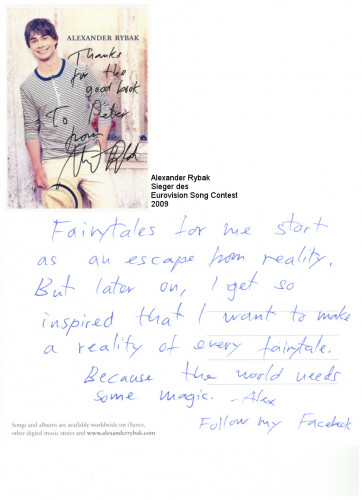 ALEXANDER RYBAK
Thanks
for the
good book
To Peter
from
Alexander Rybak
Sieger des
Eurovision Song Contest
2009
Fairytales for me start
as an escape from reality.
But later on, I get so
inspired that I want to make
a reality of every fairytale.
Because the world needs
some magic. - Alex
Follow my Facebook
Songs and albums are available worldwide on iTunes,
other digital music stores and www.alexanderrybak.com